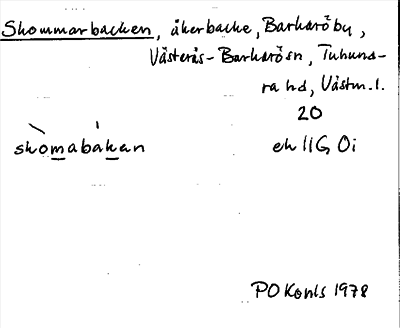 Skommarbacken, åkerbacke, Barkarö by,
Västerås-Barkarö sn, Tuhund-
ra hd, Västm. l.
20
skomabakan ek 11G 0i
PO Konls 1978